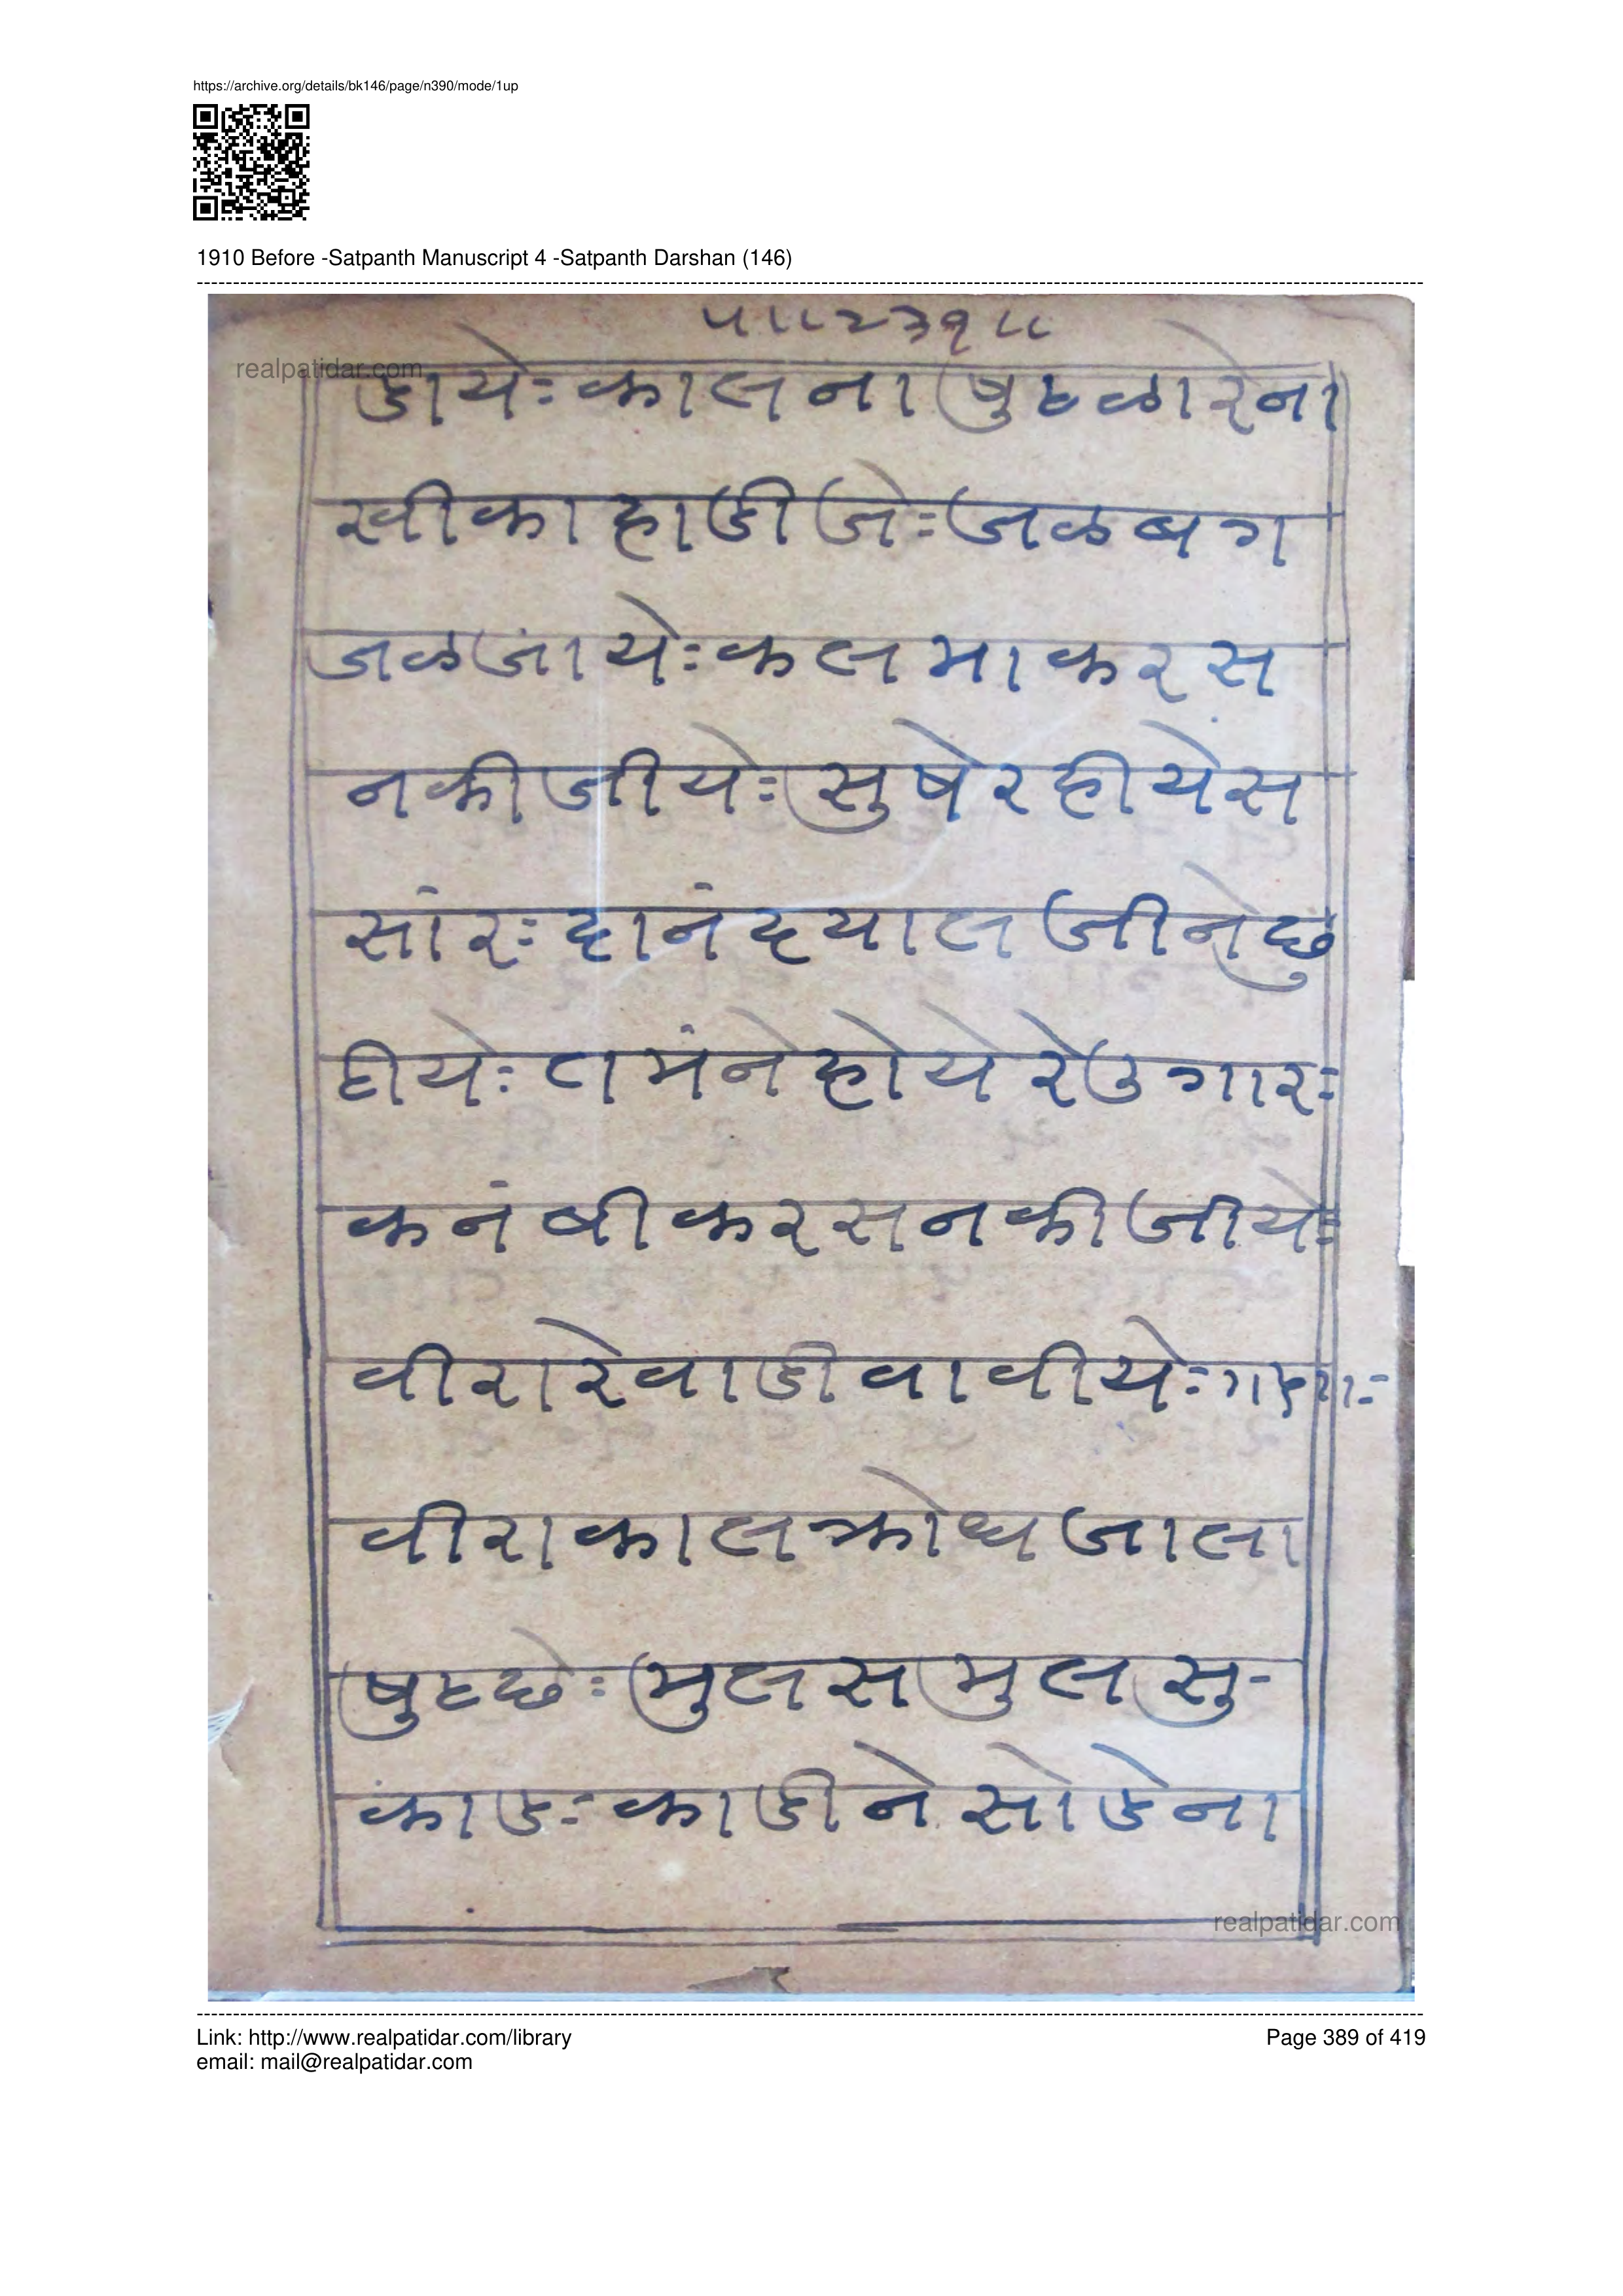 https://archive.org/details/bk146/page/n390/mode/1up
1910 Before -Satpanth Manuscript 4 -Satpanth Darshan (146)
५॥२३१॥
realpatidar.com
डाये: कालना षुहळारेना
खीकाहाडीजे: जळबग
जळजांये: कलमाकरस
नकीजीये: सुषेरहीयेस
सांर: दानंदयालजीनेछु
टीये: तमंनेहोयेरेउगार:
कनंबीकरसनकीजीये:
वीरारेवाडीवावीये:
वीराकालक्रोधजाला
षुहछे: मुलसमुलसु-
कांड: काडीनेसोडेना
realpatidar.com
Link: http://www.realpatidar.com/library
Page 389 of 419
email: mail@realpatidar.com